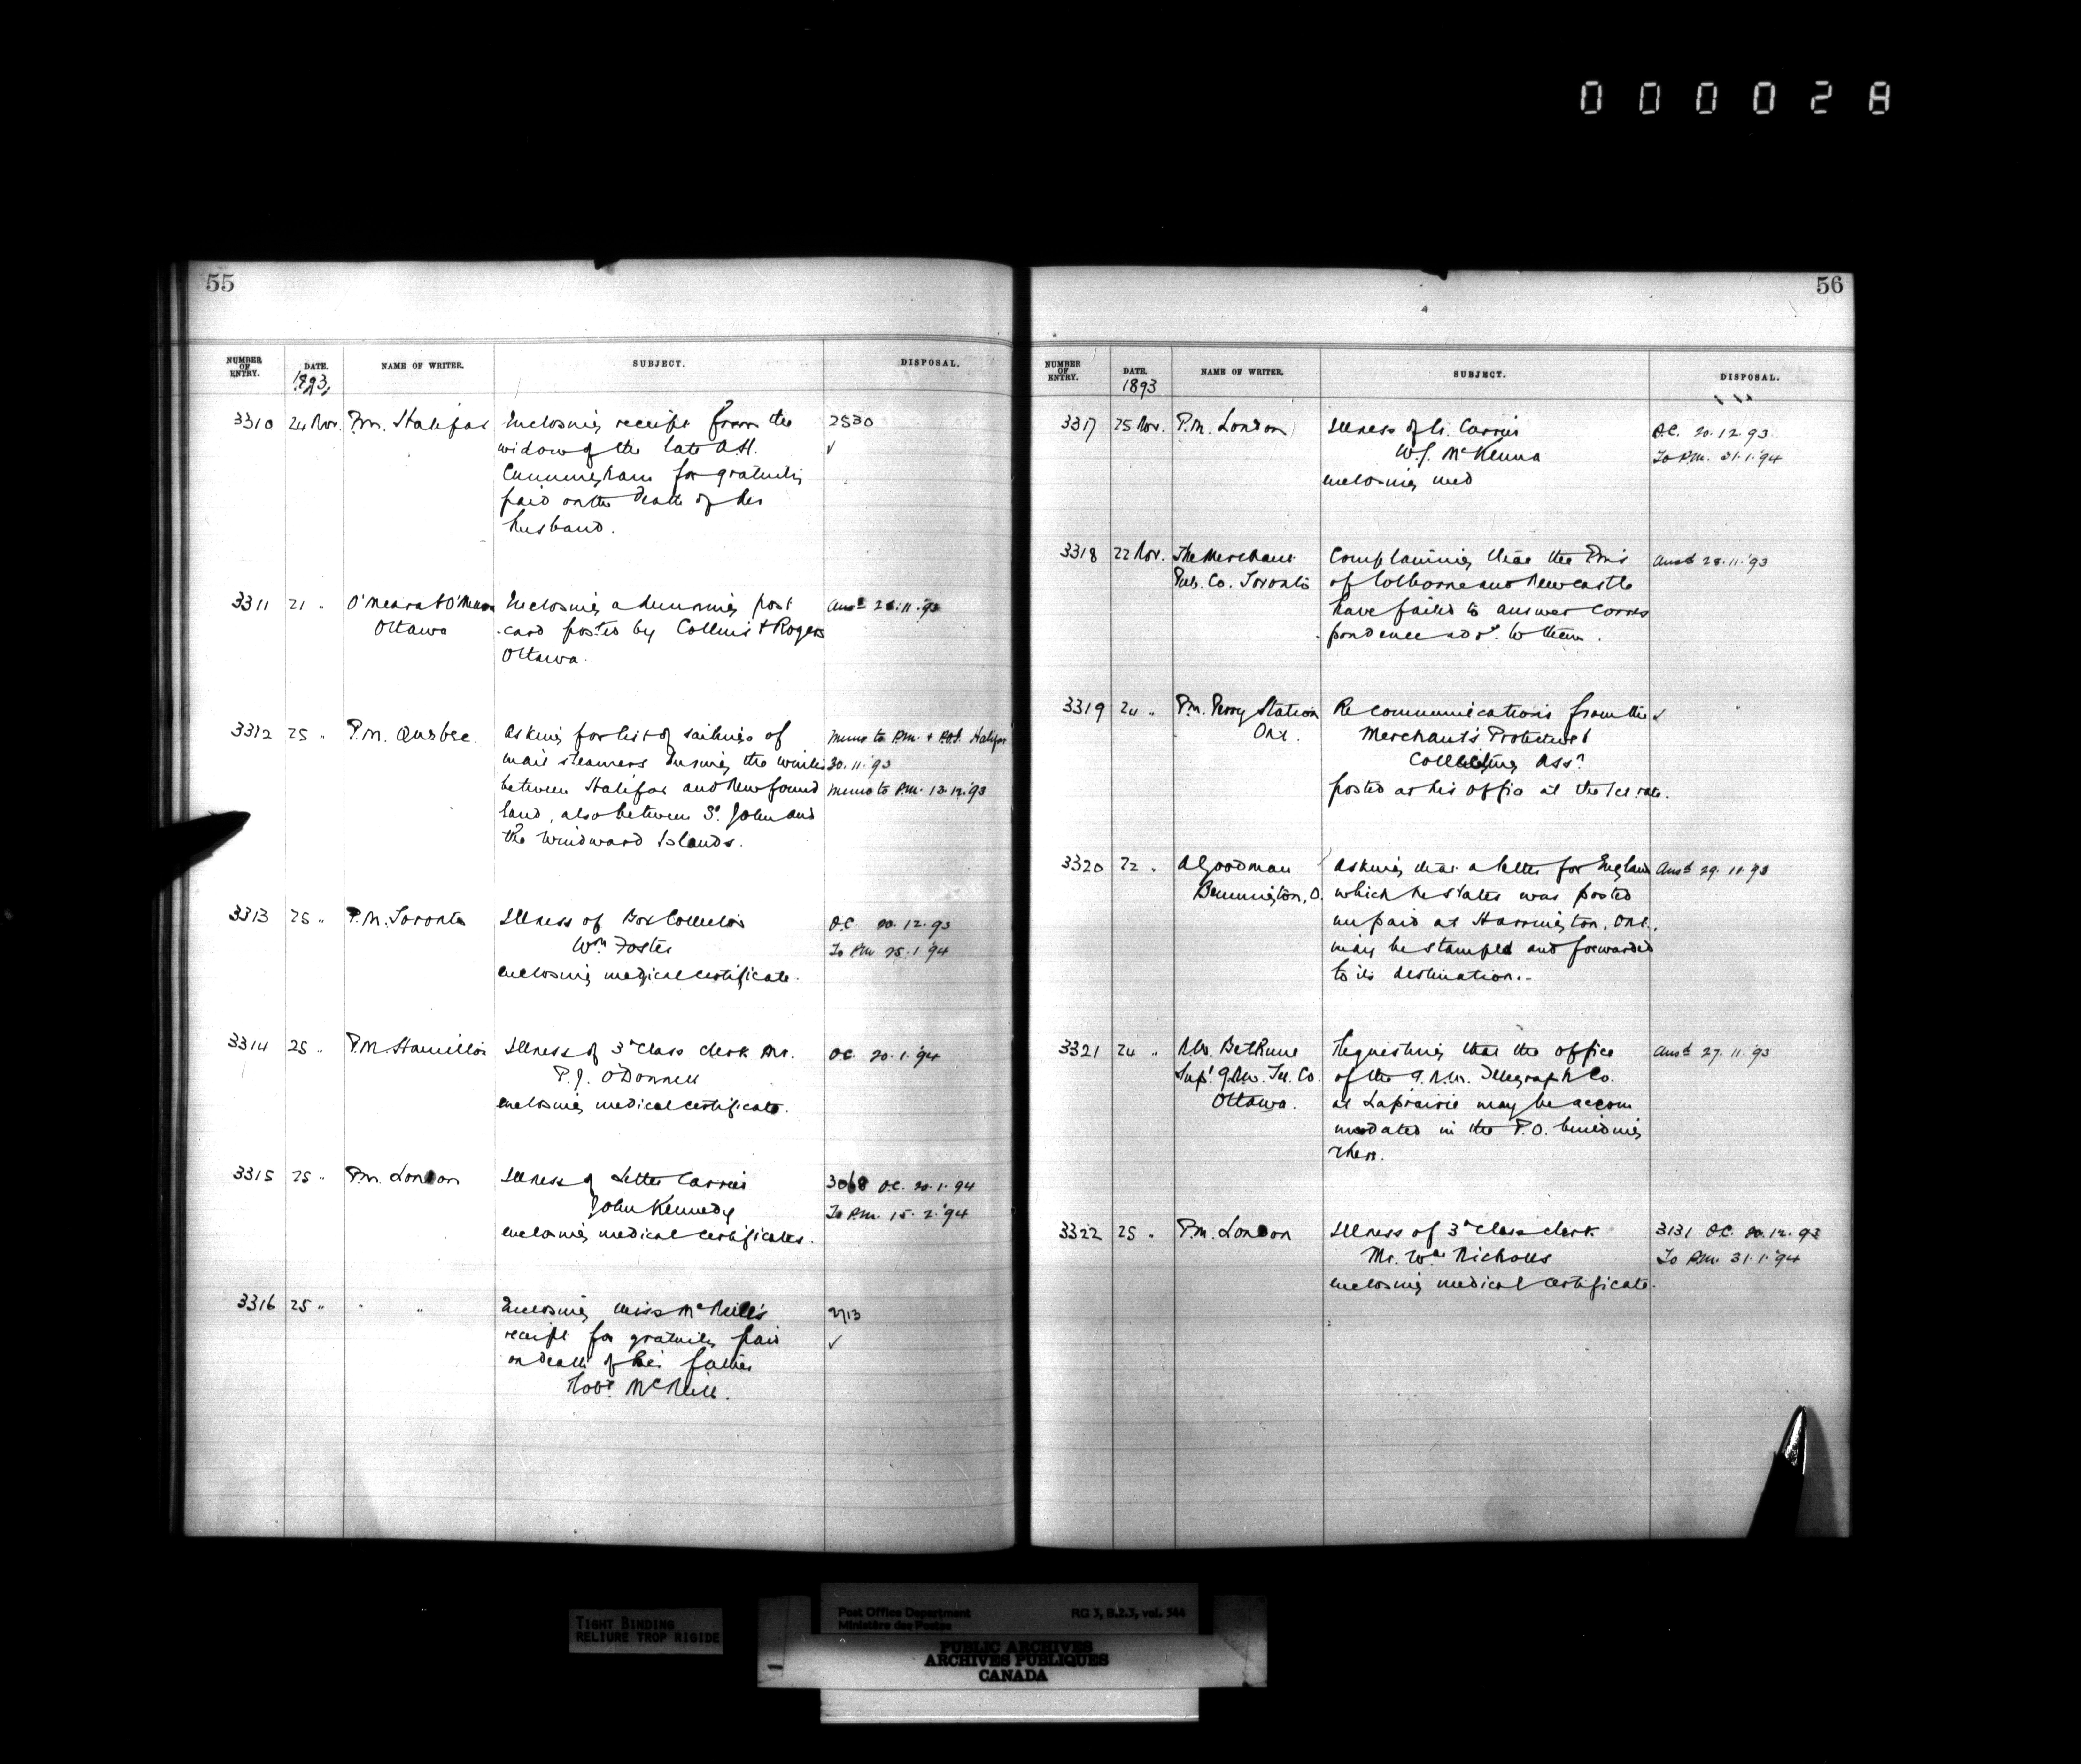 000028
55
NUMBER OF ENTRY. DATE. NAME OF WRITER. SUBJECT. DISPOSAL.
1893
3310 24 Nov. P.M. Halifax Enclosing receipt from the 2530
widow of the late A.H. ✓
Cunningham for gratuity
paid on the death of her
husband.
3311 21 " O'Meara & O'Meara Enclosing a dunning post Ansd 28.11.93
Ottawa card posted by Collins & Rogers
Ottawa.
3312 25 " P.M. Quebec Asking for list of sailings of Memo to P.M. + P.O.I. Halifax
mail steamers during the winter 30.11.93
between Halifax and Newfound Memo to P.M. 13.12.93
land, also between St. John and
the Windward Islands.
3313 25 " P.M. Toronto Illness of Box Collector O.C. 20.12.93
Wm Foster To P.M. 25.1.94
enclosing medical certificate.
3314 25 " P.M. Hamilton Illness of 3d Class Clerk Mr. O.C. 20.1.94
P.J. O'Donnell
enclosing medical certificate.
3315 25 " P.M. London Illness of Letter Carrier 3068 O.C. 20.1.94
John Kennedy To P.M. 15.2.94
enclosing medical certificates.
3316 25 " " " Enclosing Miss McNeill's 2713
receipt for gratuity paid ✓
on death of her father
Robt. McNeill.
56
NUMBER OF ENTRY. DATE. NAME OF WRITER. SUBJECT. DISPOSAL.
1893
3317 25 Nov. P.M. London Illness of Lr. Carrier O.C. 20.12.93
W.J. McKenna To P.M. 31.1.94
enclosing med
3318 22 Nov. The Merchants Complaining that the PMs Ansd 28.11.93
Pub. Co. Toronto of Colborne and Newcastle
have failed to answer corres
pondence addd. to them.
3319 24 " P.M. Perry Station Re communications from the ✓
Ont. Merchant's Protective &
Collecting Assn
posted at his office at the 1ct rate.
3320 22 " A Goodman Asking that a letter for England Ansd 29.11.93
Bennington, O. which he states was posted
unpaid at Harrington, Ont.,
may be stamped and forwarded
to its destination.-
3321 24 " Bethune Requesting that the office Ansd 27.11.93
Supt. G.N.W. Tel. Co. of the G.N.W. Telegraph Co.
Ottawa. at Laprairie may be accom
modated in the P.O. building
there.
3322 25 " P.M. London Illness of 3d Class Clerk 3131 O.C. 20.12.93
Mr. Wm Nicholls To P.M. 31.1.94
enclosing medical certificate.
TIGHT BINDING
RELIURE TROP RIGIDE
Post Office Department RG 3, B.2.3, vol. 544
Ministère des Postes
PUBLIC ARCHIVES
ARCHIVES PUBLIQUES
CANADA